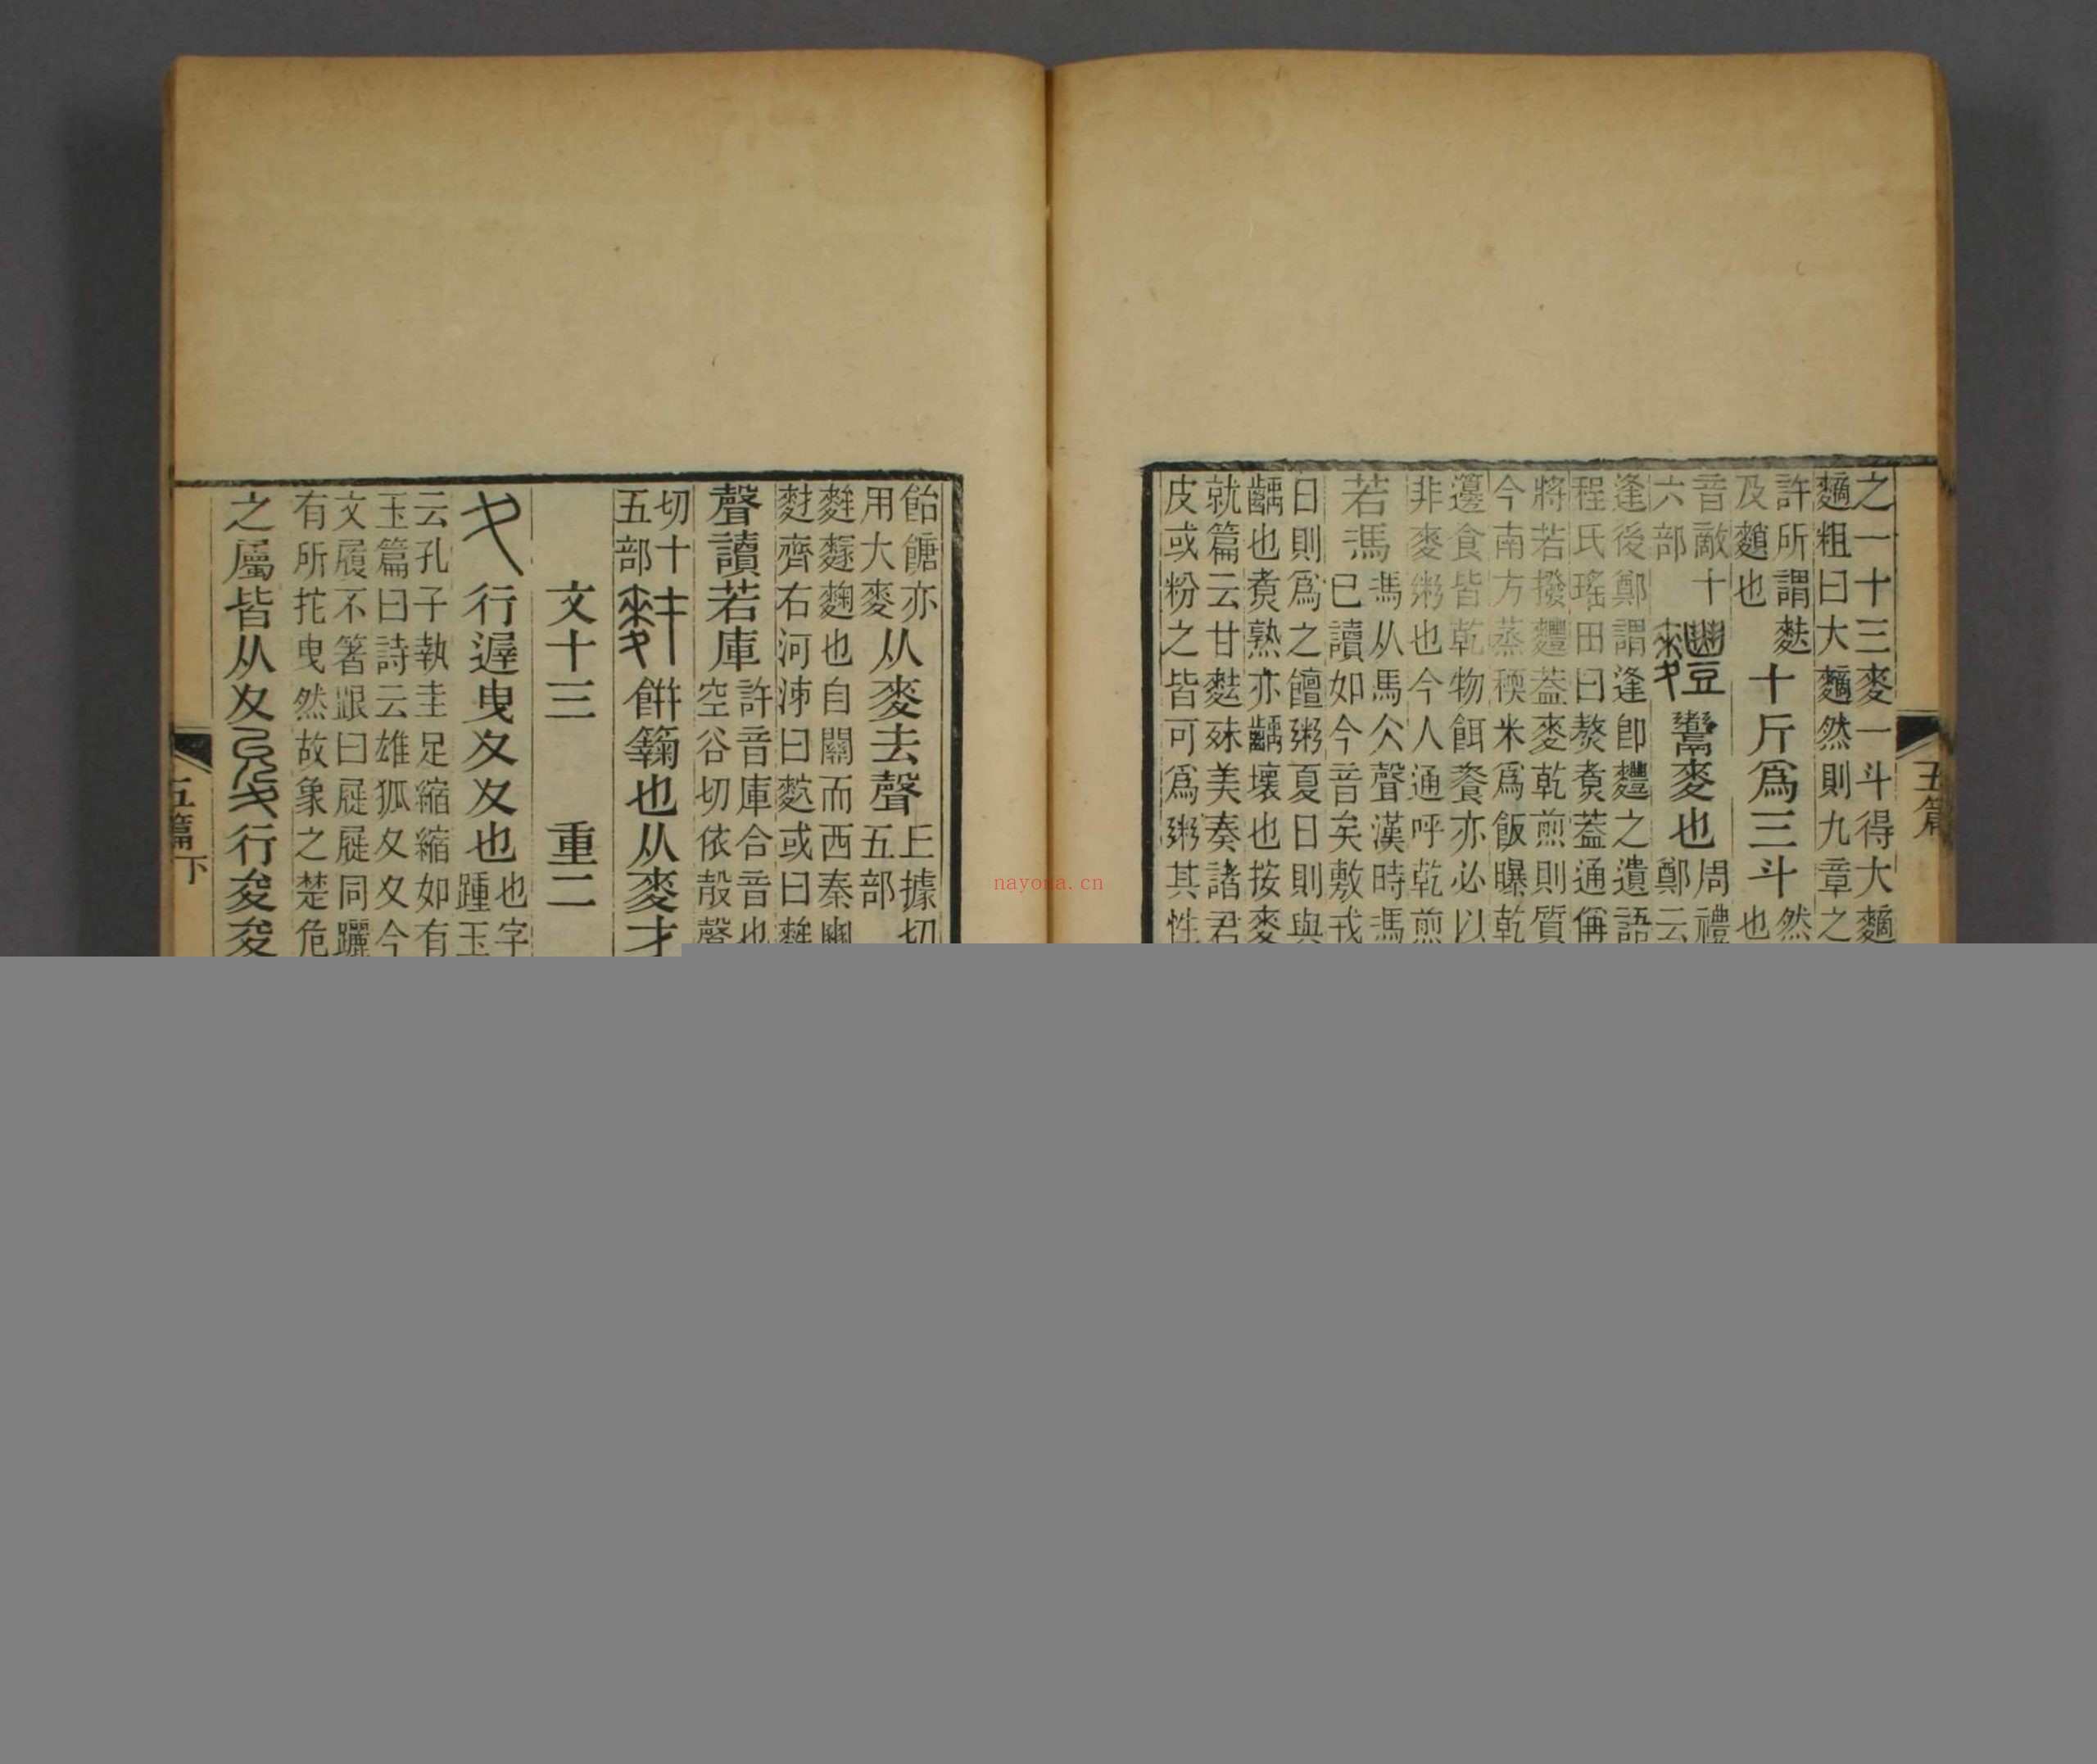 之一十三麥一斗得大䵂
䵂粗曰大䵂然則九章之
許所謂麩
及䴬也
十斤爲三斗
然
也
音敵十
六部
麷
鬻麥也
周禮
鄭云
逢後鄭謂逢卽麷之遺語
程氏瑤田曰熬煑蓋通偁
將若撥麷蓋麥乾煎則質
今南方蒸稬米爲飯曝乾
籩食皆乾物餌餈亦必以
非麥粥也今人通呼乾煎
若馮
馮从馬仌聲漢時馮
已讀如今音矣敷戎
曰則爲之饘粥夏日則與
䴰也煑熟亦䴰壞也按麥
就篇云甘麮殊美奏諸君
皮或粉之皆可爲粥其性
五篇
nayona.cn
飴餹亦
用大麥
从麥去聲
丘據切
五部
麰麳麴也自關而西秦豳
麩齊右河泲曰䴷或曰麰
聲讀若庫
許音庫合音也
空谷切依㱿聲
切十
五部
䴭
䴵䴛也从麥才
文十三　重二
夊
行遲曳夊夊也
也字
踵玉
云孔子執圭足縮縮如有
玉篇曰詩云雄狐夊夊今
文履不箸跟曰屣屣同躧
有所拕曳然故象之楚危
之屬皆从夊
夋
行夋夋
五篇下